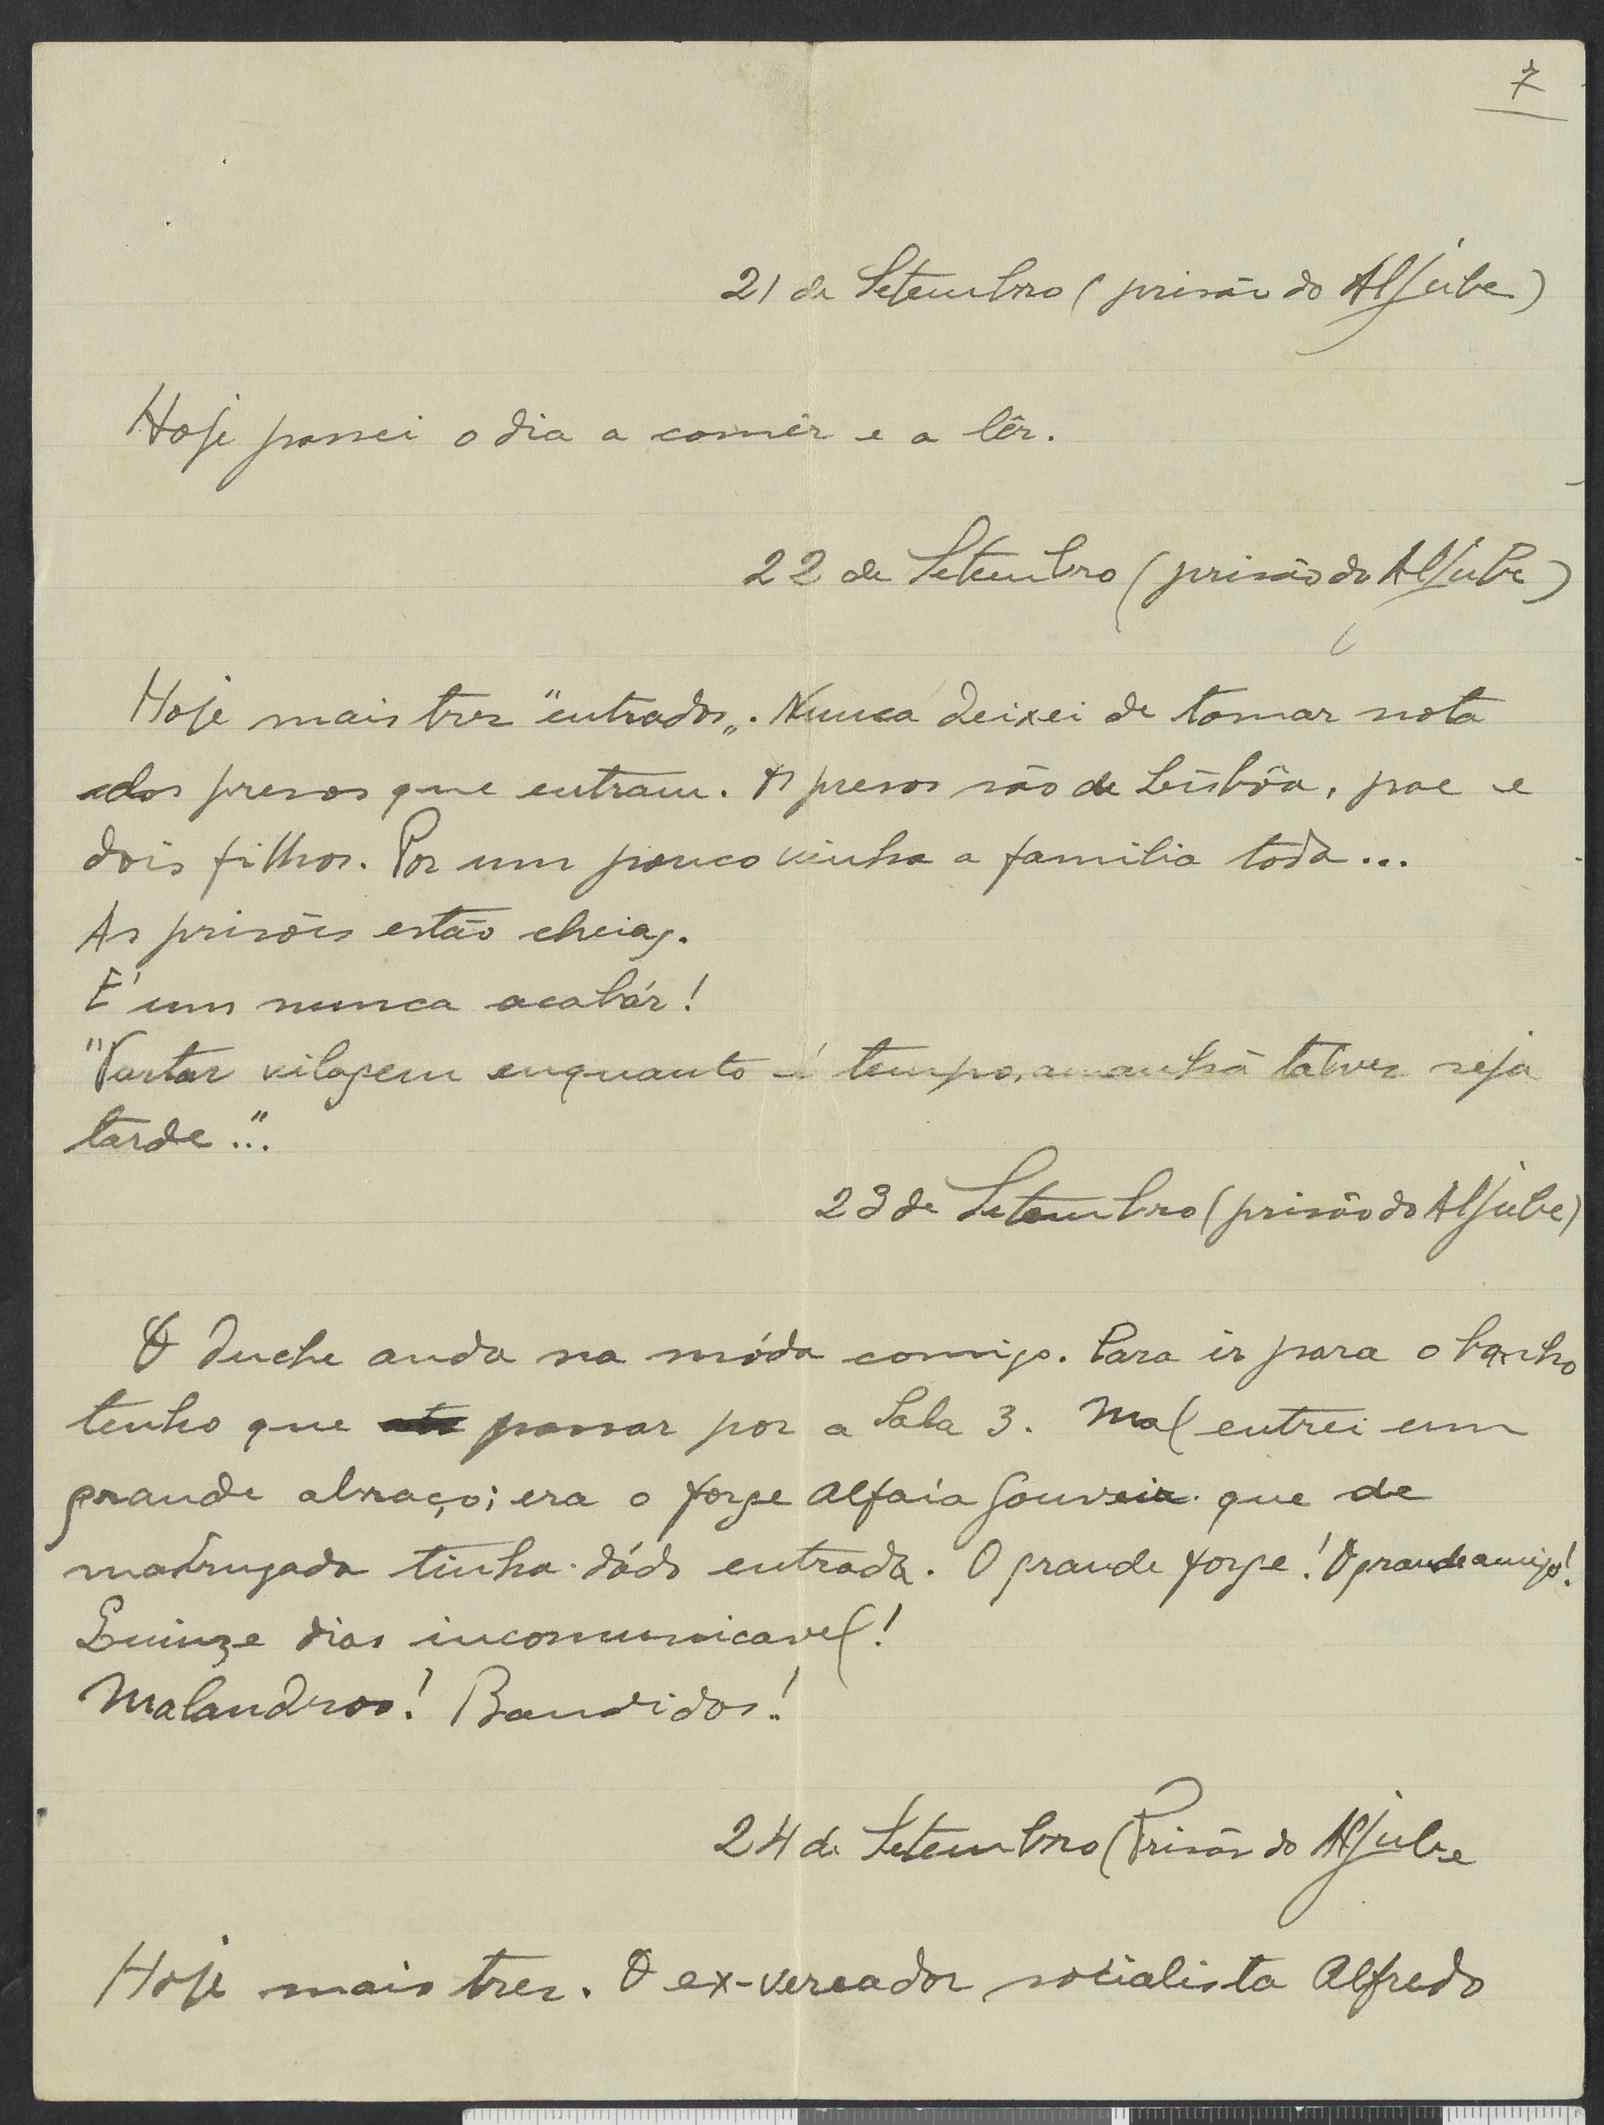 7
21 de Setembro (prisão do Aljube)
Hoje passei o dia a comêr e a lêr.
22 de Setembro (prisão do Aljube)
Hoje mais tres "entrados„. Nunca deixei de tomar nota
dos presos que entram. Os presos são de Lisbôa, pae e
dois filhos. Por um pouco vinha a familia toda...
As prisões estão cheias.
É um nunca acabár!
"Fartar vilagem enquanto é tempo, amanhã talvez seja
tarde"...
23 de Setembro (prisão do Aljube)
O duche anda na móda comigo. Para ir para o banho
tenho que passar por a Sala 3. Mal entrei um
grande abraço; era o Jorge Alfaia Gouveia que de
madrugada tinha dádo entrada. O grande Jorge! O grande amigo!
Quinze dias incomunicavel!
Malandros! Bandidos!
24 de Setembro (Prisão do Aljube
Hoje mais tres. O ex-vereador socialista Alfredo